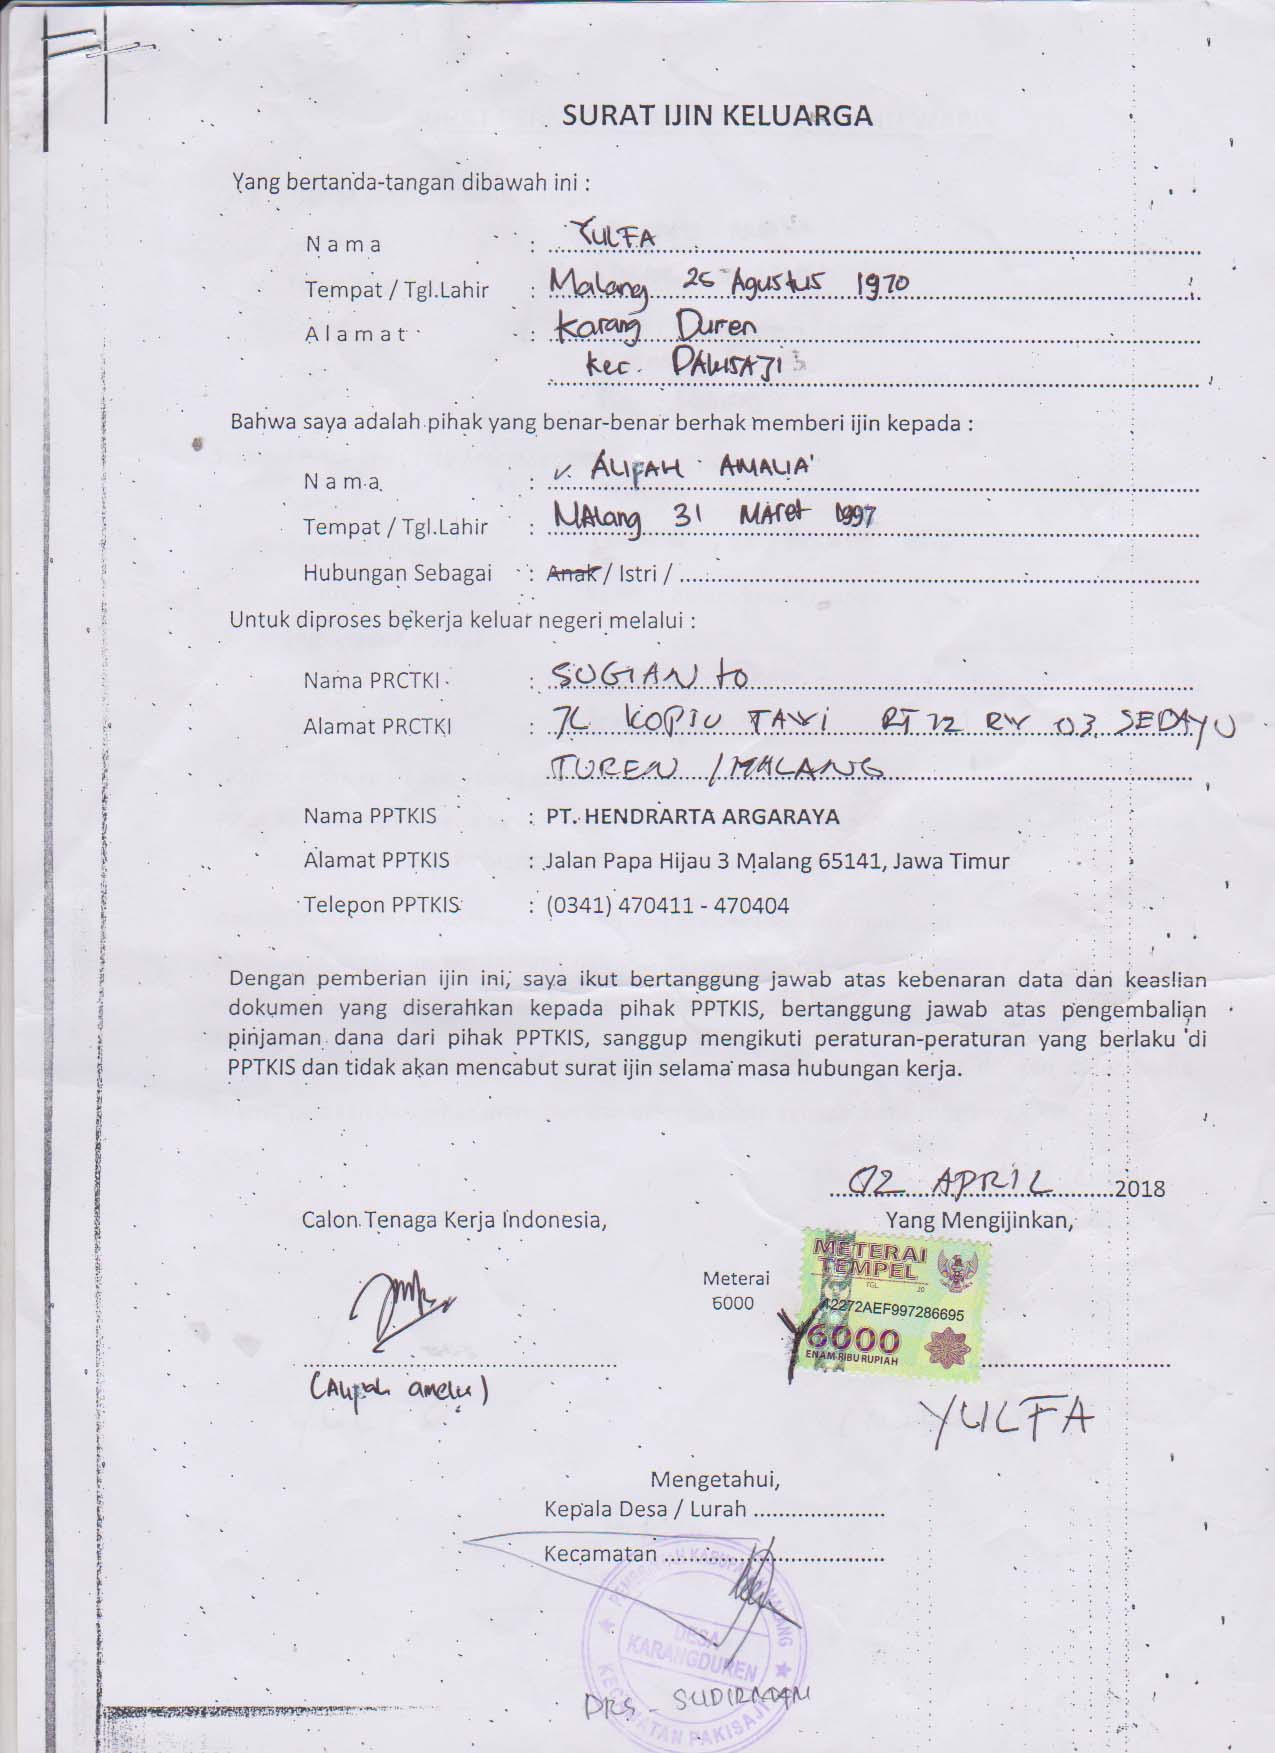 SURAT IJIN KELUARGA
Yang bertanda-tangan dibawah ini :
N a m a : YULFA
Tempat / Tgl.Lahir : Malang 25 Agustus 1970
A l a m a t : Karang Duren
kec. PAKISAJI
Bahwa saya adalah pihak yang benar-benar berhak memberi ijin kepada :
N a m a : ALIFAH AMALIA
Tempat / Tgl.Lahir : MALang 31 MAret 1997
Hubungan Sebagai : Anak / Istri /
Untuk diproses bekerja keluar negeri melalui :
Nama PRCTKI : SUGIANto
Alamat PRCTKI : JL KOPIU TAWI RT 12 RW 03 SEDAYU
TUREN / MALANG
Nama PPTKIS : PT. HENDRARTA ARGARAYA
Alamat PPTKIS : Jalan Papa Hijau 3 Malang 65141, Jawa Timur
Telepon PPTKIS : (0341) 470411 - 470404
Dengan pemberian ijin ini, saya ikut bertanggung jawab atas kebenaran data dan keaslian
dokumen yang diserahkan kepada pihak PPTKIS, bertanggung jawab atas pengembalian
pinjaman dana dari pihak PPTKIS, sanggup mengikuti peraturan-peraturan yang berlaku di
PPTKIS dan tidak akan mencabut surat ijin selama masa hubungan kerja.
02 APRIL 2018
Calon Tenaga Kerja Indonesia,
Yang Mengijinkan,
METERAI
TEMPEL
TGL 20
Meterai
6000
42272AEF997286695
6000
ENAM RIBU RUPIAH
(Alifah amalia)
YULFA
Mengetahui,
Kepala Desa / Lurah
Kecamatan
KABUPATEN MALANG
DESA
KARANGDUREN
KECAMATAN PAKISAJI
DRS - SUDIRMAN